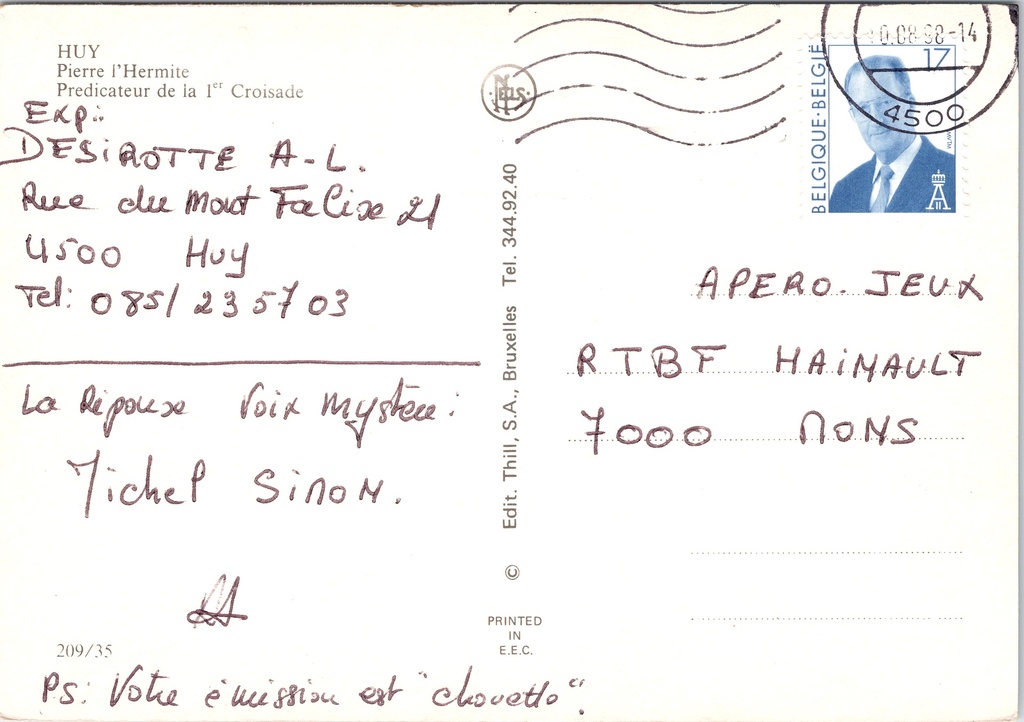 HUY
Pierre l'Hermite
Predicateur de la 1er Croisade
Exp:
DESIROTTE A-L.
Rue du Mont Falise 21
4500 Huy
Tel: 085/ 23 57 03
La Réponse Voix Mystère:
Michel SIMON.
209/35
PS: Votre émission est "chouette".
NELS
Edit. Thill, S.A., Bruxelles Tel. 344.92.40
©
PRINTED
IN
E.E.C.
BELGIQUE·BELGIË
17
4500
APERO. JEUX
RTBF HAINAULT
7000 MONS